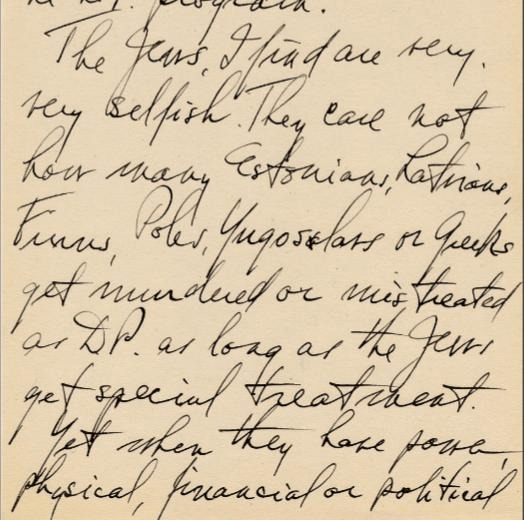 The Jews, I find are very,
very selfish. They care not
how many Estonians, Latvians,
Finns, Poles, Yugoslavs or Greeks
get murdered or mistreated
as D.P. as long as the Jews
get special treatment.
Yet when they have power,
physical, financial or political